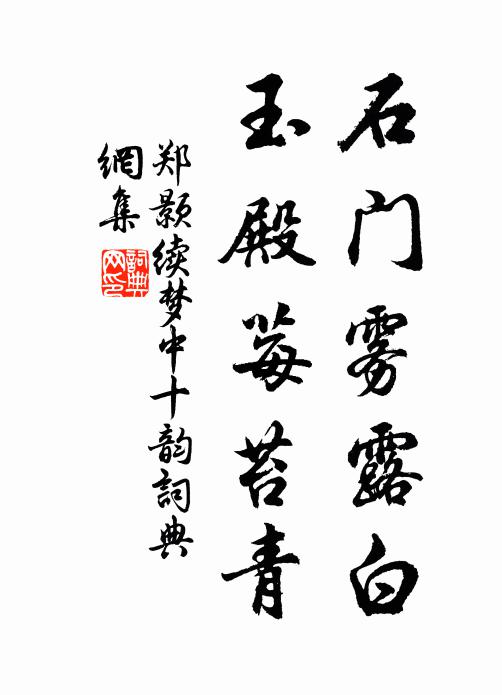 石门雾露白
玉殿莓苔青
郑颢续梦中十韵词典
網集
词典网印